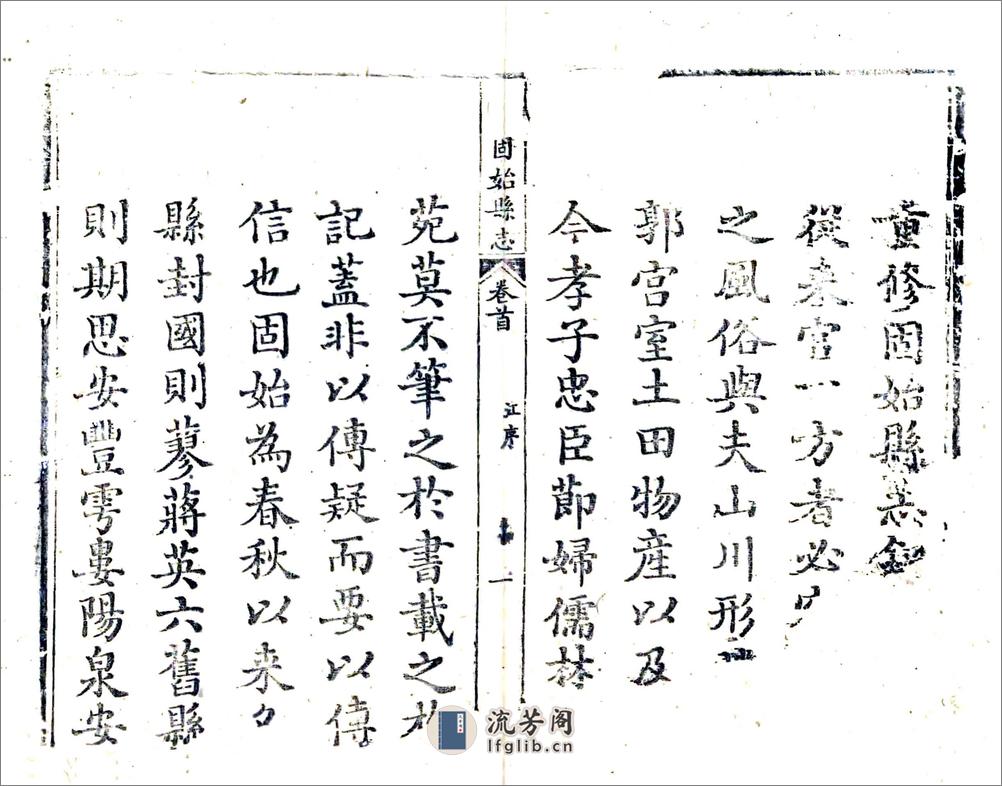 重修固始縣志叙
從来官一方者必
之風俗與夫山川形
郭宫室土田物産以及
今孝子忠臣節婦儒林
固始縣志 卷首 江序 一
苑莫不筆之於書載之
記蓋非以傳疑而要以傳
信也固始為春秋以来
縣封國則蓼蔣英六舊縣
則期思安豐雩婁陽泉安
流芳阁
lfglib.cn